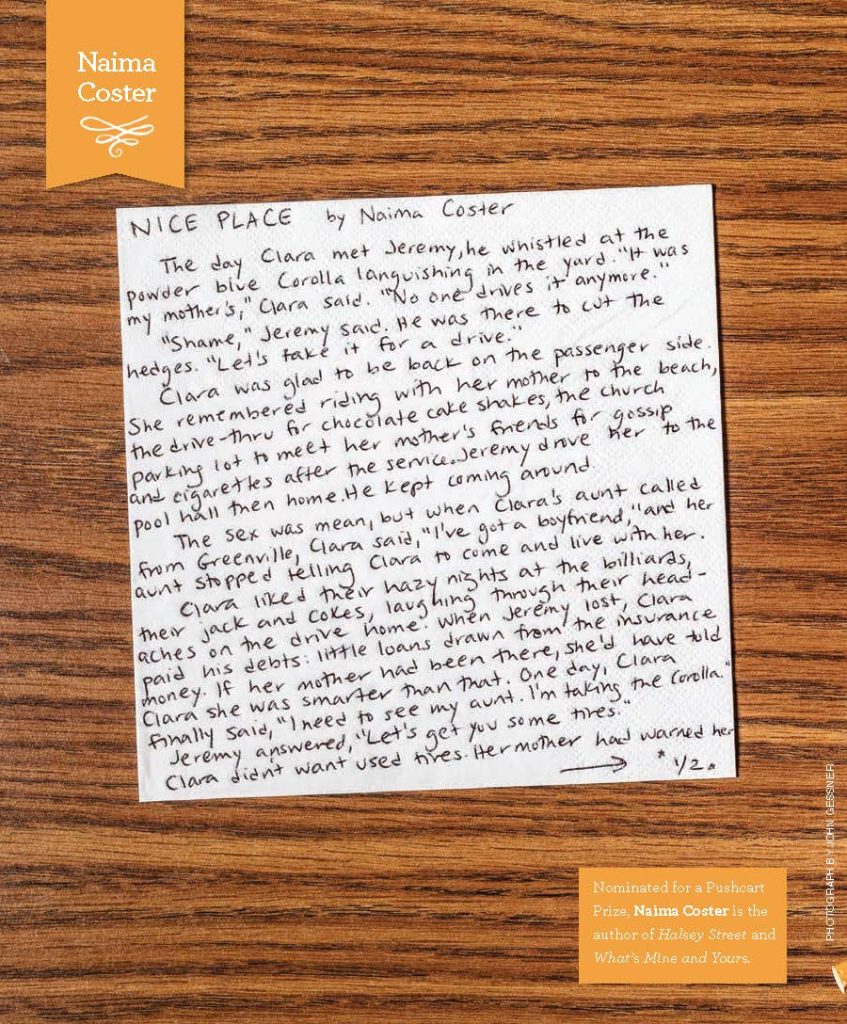 Naima
Coster
NICE PLACE by Naima Coster
The day Clara met Jeremy, he whistled at the
powder blue Corolla languishing in the yard. "It was
my mother's," Clara said. "No one drives it anymore."
"Shame," Jeremy said. He was there to cut the
hedges. "Let's take it for a drive."
Clara was glad to be back on the passenger side.
She remembered riding with her mother to the beach,
the drive-thru for chocolate cake shakes, the church
parking lot to meet her mother's friends for gossip
and cigarettes after the service. Jeremy drove her to the
pool hall then home. He kept coming around.
The sex was mean, but when Clara's aunt called
from Greenville, Clara said, "I've got a boyfriend," and her
aunt stopped telling Clara to come and live with her.
Clara liked their hazy nights at the billiards,
their jack and cokes, laughing through their head-
aches on the drive home. When Jeremy lost, Clara
paid his debts: little loans drawn from the insurance
money. If her mother had been there, she'd have told
Clara she was smarter than that. One day, Clara
finally said, "I need to see my aunt. I'm taking the Corolla."
Jeremy answered, "Let's get you some tires."
Clara didn't want used tires. Her mother had warned her
→ * 1/2 *
Nominated for a Pushcart
Prize, Naima Coster is the
author of Halsey Street and
What's Mine and Yours.
PHOTOGRAPH BY JOHN GESSNER